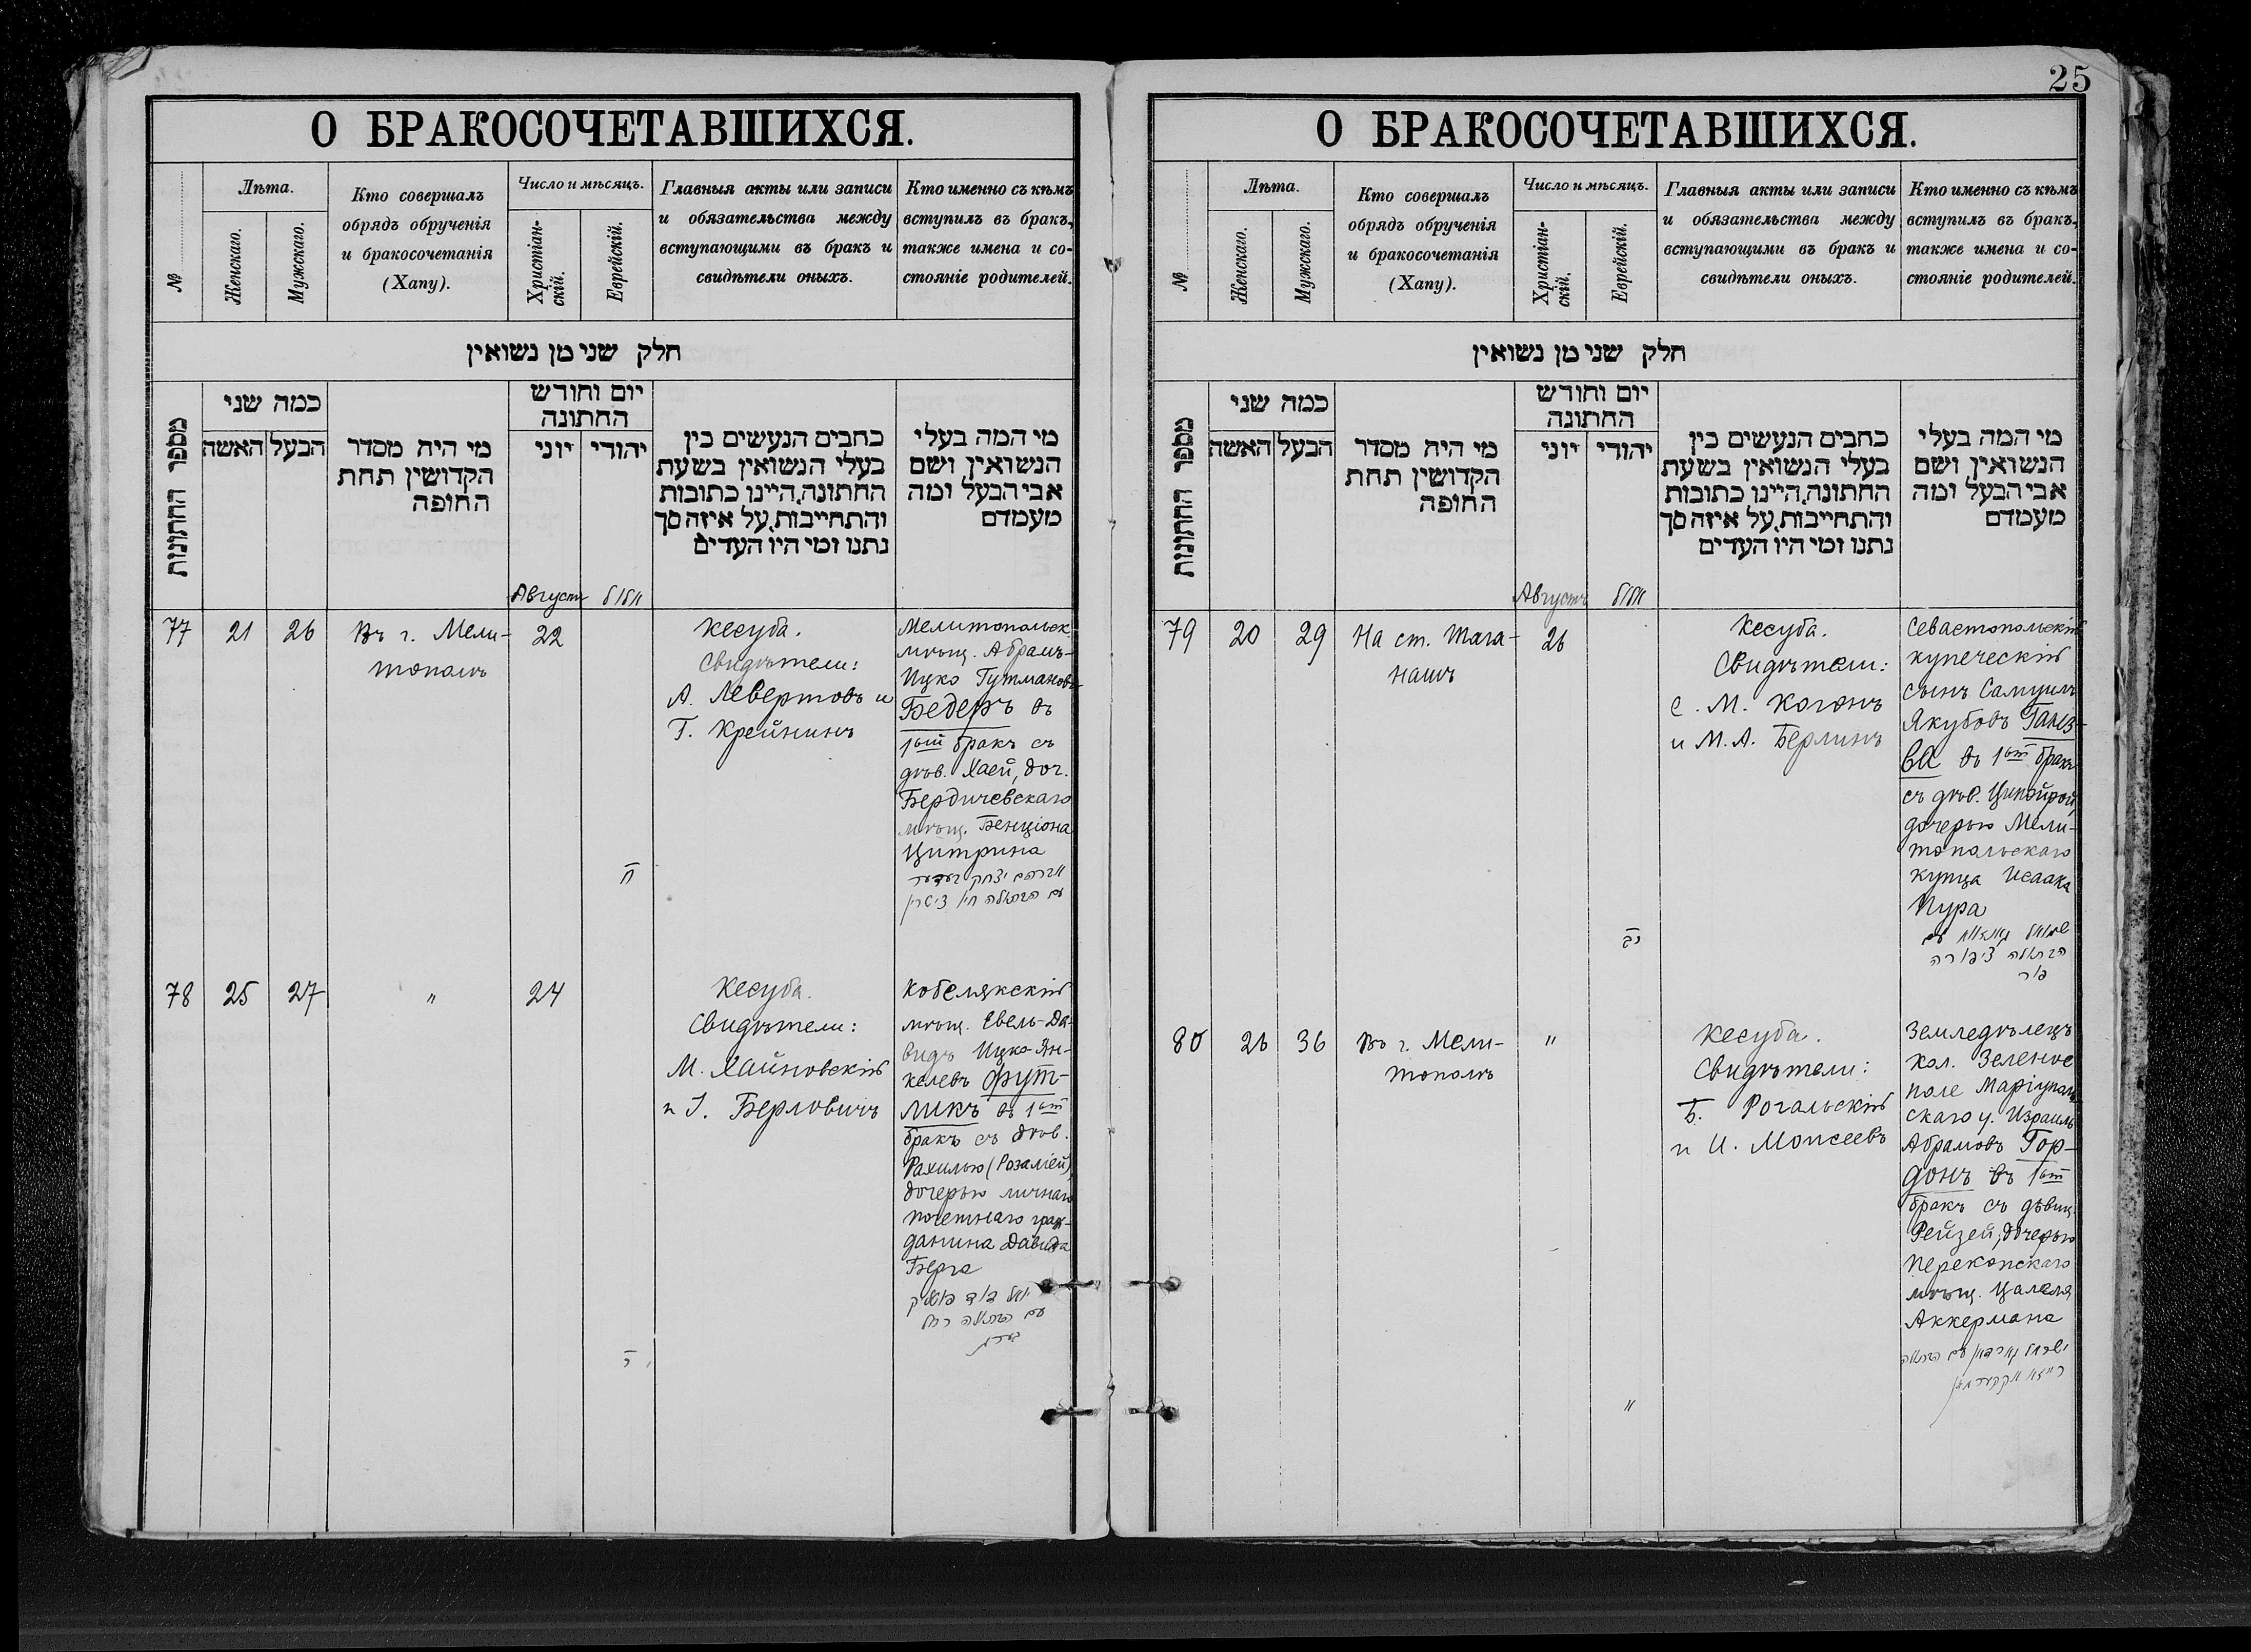 25
О БРАКОСОЧЕТАВШИХСЯ.
№
Лѣта.
Женскаго.
Мужскаго.
Кто совершалъ
обрядъ обрученія
и бракосочетанія
(Хапу).
Число и мѣсяцъ.
Христіан-
скій.
Еврейскій.
Главныя акты или записи
и обязательства между
вступающими въ бракъ и
свидѣтели оныхъ.
Кто именно съ кѣмъ
вступилъ въ бракъ,
также имена и со-
стояніе родителей.
חלק שני מן נשואין
מספר החתונות
כמה שני
האשה
הבעל
מי היה מסדר
הקדושין תחת
החופה
יום וחודש
החתונה
יוני
יהודי
כתבים הנעשים בין
בעלי הנשואין בשעת
החתונה, היינו כתובות
והתחייבות, על איזה סך
נתנו ומי היו העדים
מי המה בעלי
הנשואין ושם
אבי הבעל ומה
מעמדם
Августъ
אלול
77
21
26
Въ г. Мели-
тополѣ
22
ח
Кесуба.
Свидѣтели:
А. Левертовъ и
Г. Крейнинъ
Мелитопольск.
мѣщ. Абрамъ-
Ицко Гутмановъ
Бедеръ въ
1ый бракъ съ
дѣв. Хаей, доч.
Бердичевскаго
мѣщ. Бенціона
Цитрина
אברהם יצחק בעדער
עם הבתולה חי' ציטרין
78
25
27
"
24
י
Кесуба.
Свидѣтели:
М. Хайновскій
и І. Берловичъ
Кобелякскій
мѣщ. Евель-Да-
видъ Ицко-Ян-
келевъ Фут-
ликъ въ 1ый
бракъ съ дѣв.
Рахилью (Розаліей),
дочерью личнаго
почетнаго граж-
данина Давида
Берга
עם הבתולה רחל
О БРАКОСОЧЕТАВШИХСЯ.
№
Лѣта.
Женскаго.
Мужскаго.
Кто совершалъ
обрядъ обрученія
и бракосочетанія
(Хапу).
Число и мѣсяцъ.
Христіан-
скій.
Еврейскій.
Главныя акты или записи
и обязательства между
вступающими въ бракъ и
свидѣтели оныхъ.
Кто именно съ кѣмъ
вступилъ въ бракъ,
также имена и со-
стояніе родителей.
חלק שני מן נשואין
מספר החתונות
כמה שני
האשה
הבעל
מי היה מסדר
הקדושין תחת
החופה
יום וחודש
החתונה
יוני
יהודי
כתבים הנעשים בין
בעלי הנשואין בשעת
החתונה, היינו כתובות
והתחייבות, על איזה סך
נתנו ומי היו העדים
מי המה בעלי
הנשואין ושם
אבי הבעל ומה
מעמדם
Августъ
אלול
79
20
29
На ст. Тага-
нашъ
26
יב
Кесуба.
Свидѣтели:
С. М. Коганъ
и М. А. Берлинъ
Севастопольскій
купеческій
сынъ Самуилъ
Якубовъ
въ 1ый бракъ
съ дѣв. Ципойрой,
дочерью Мели-
топольскаго
купца Исаака
Пура
שמואל עם
הבתולה ציפורה
פור
80
26
36
Въ г. Мели-
тополѣ
"
"
Кесуба.
Свидѣтели:
Б. Рогальскій
и И. Моисеевъ
Земледѣлецъ
кол. Зеленое
поле Маріуполь-
скаго у. Израиль
Абрамовъ Гор-
донъ въ 1ый
бракъ съ дѣвиц.
Рейзей, дочерью
Перекопскаго
мѣщ. Цалеля
Аккермана
ישראל גארדאן עם הבתולה
רייזא אקקערמאן